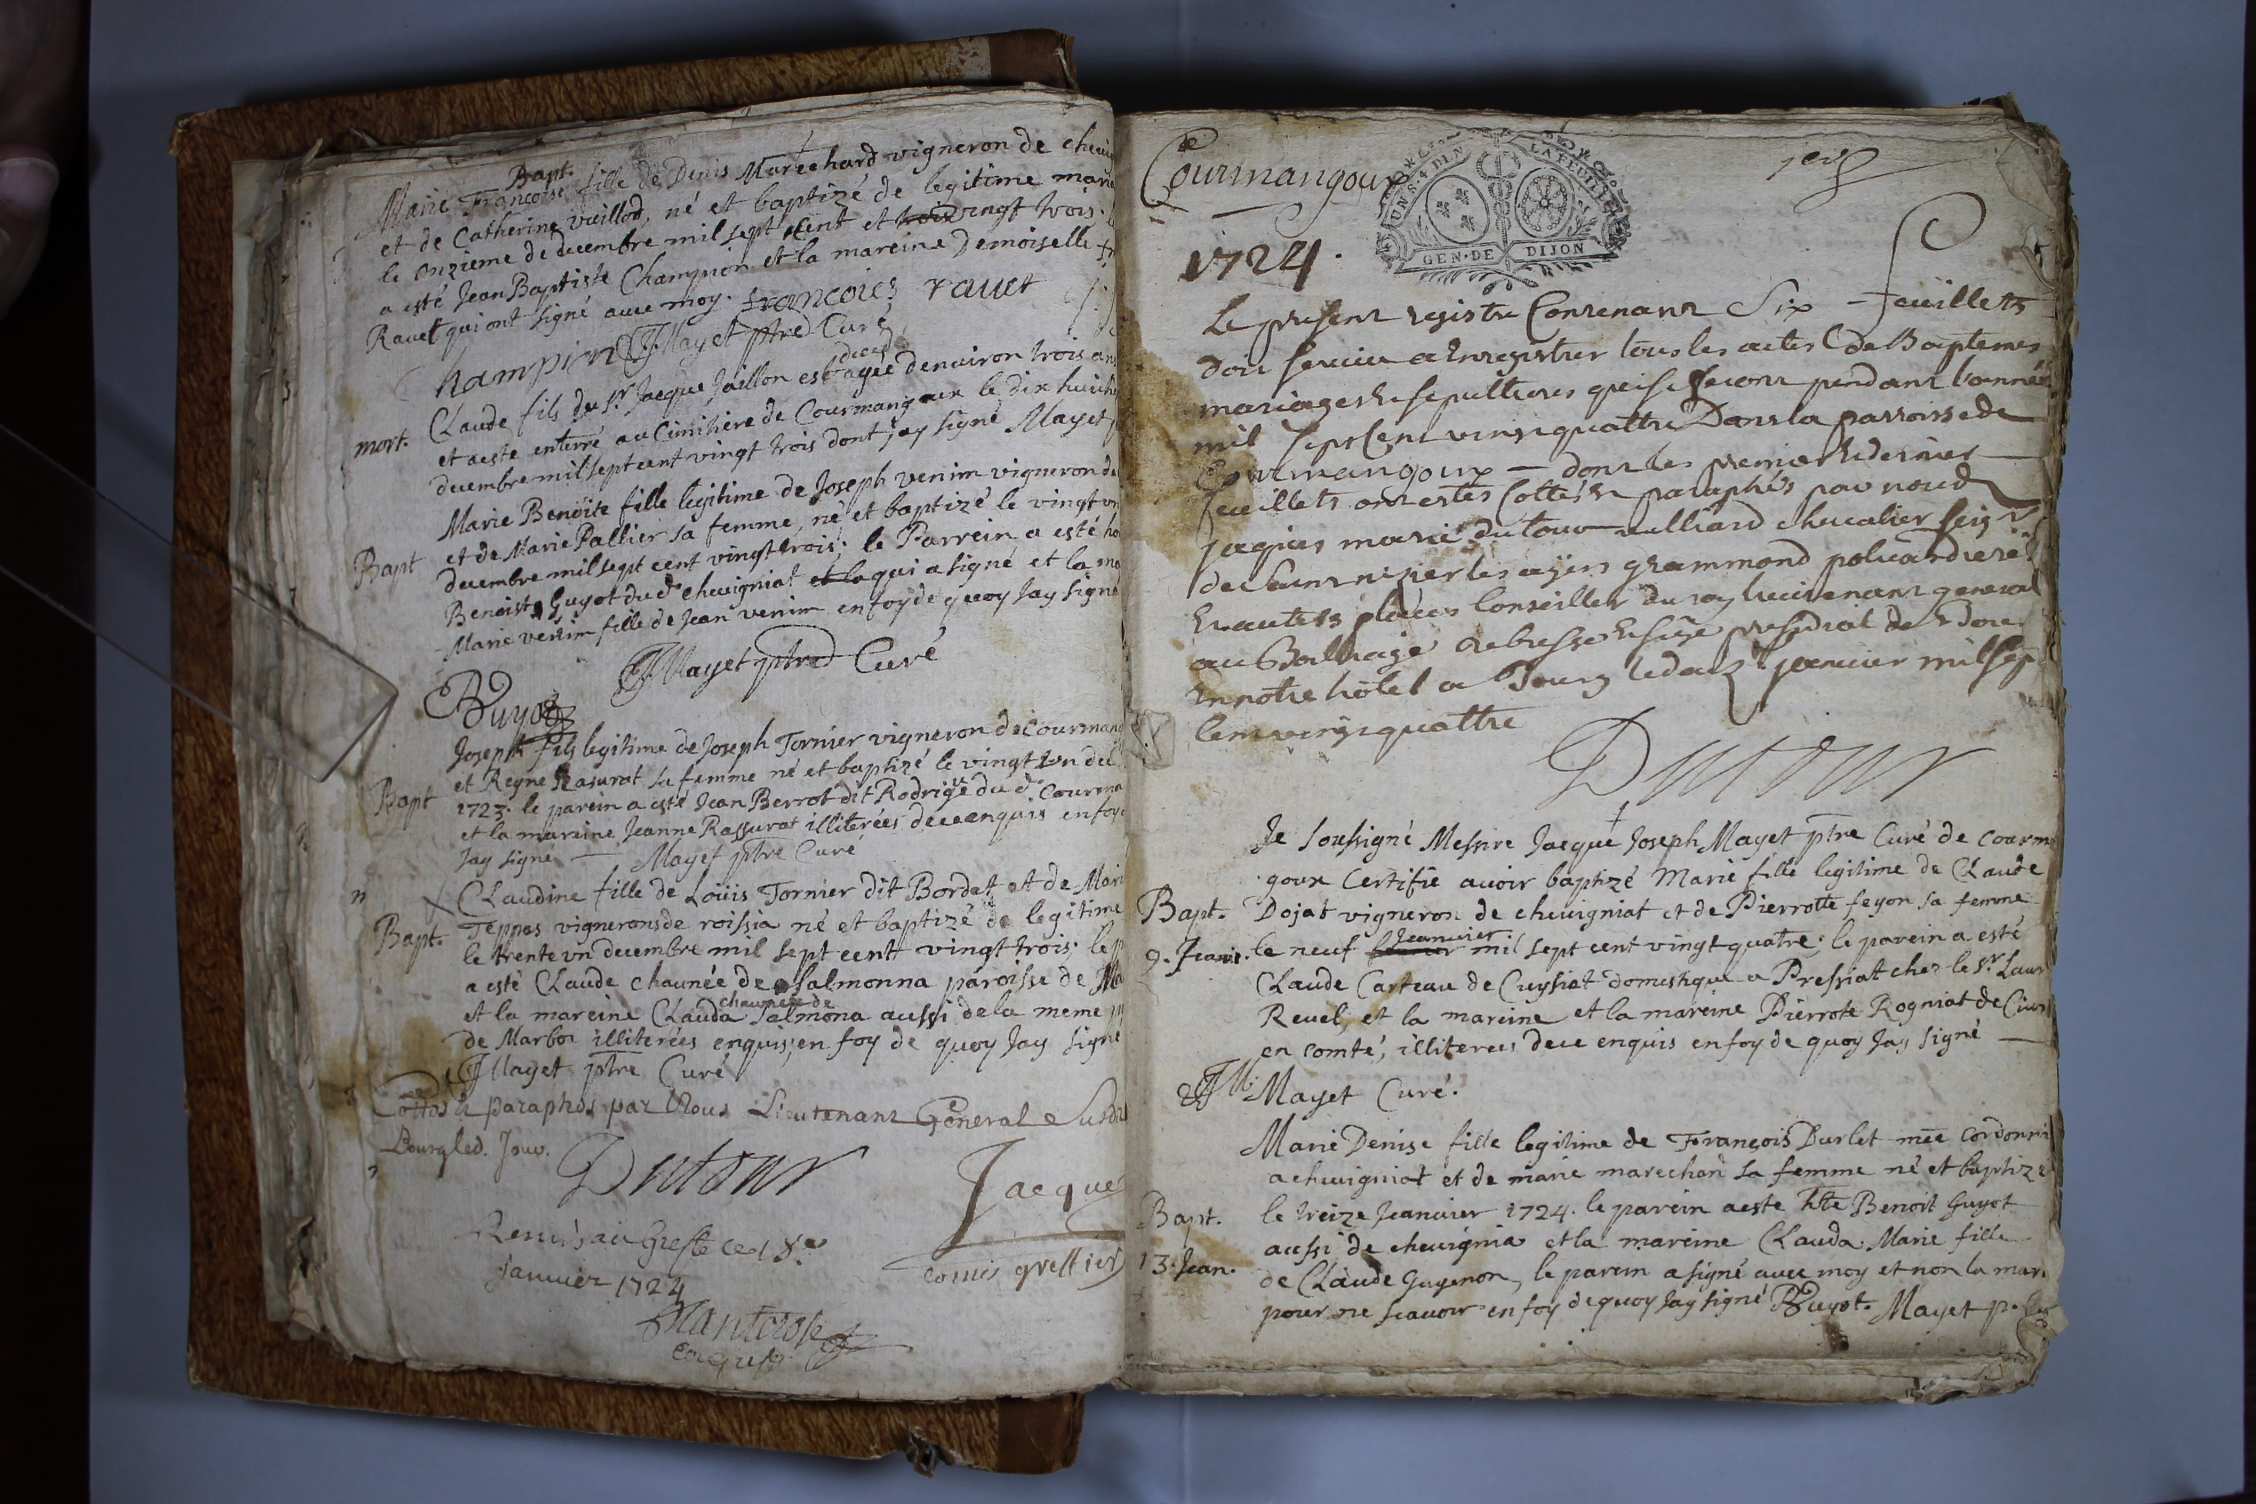 Bapt.
Marie Françoise fille de Denis Marechard vigneron de
et de Catherine vuillod, né et baptizé de legitime
le onzieme de decembre mil sept cent et vingt trois.
a esté Jean Baptiste Champion et la mareine Demoiselle
Rauet qui ont signé avec moy. francoies rauet
Champion JJMayet ptre Curé
mort. Claude fils du Sr Jacque Jaillon est decedé agée denuiron trois
et aeste enterré au Cimitiere de Courmangoux le dix
decembre mil sept cent vingt trois dont jay signé Mayet
Marie Benoite fille legitime de Joseph venim vigneron
Bapt et de Marie Pallier sa femme, né et baptizé le vingt
decembre mil sept cent vingt trois; le Parrein a esté
Benoist Guyot dud. cheuigniat et la qui a signé et la
Marie venim fille de Jean venim en foy de quoy Jay signé
JJMayet ptre Curé
BGuyot
Joseph fils legitime de Joseph Tornier vigneron de
Bapt et Regne Rasurat sa femme né et baptizé le vingt un
1723. le parein a esté Jean Berrot dit Rodrigue dud.
et la mareine Jeanne Rassurat illiterées dece enquis en foy
Jay signé — Mayet ptre Curé
Claudine fille de Loüis Tornier dit Bordat et de
Bapt. Teppes vignerons de roissia né et baptizé de legitime
le trente un decembre mil sept cent vingt trois; le
a esté Claude chaunée de Salmonna paroisse de
et la mareine Clauda chaunée de Salmona aussi de la meme
de Marboz illiterées enquis; en foy de quoy Jay signé
JJMayet ptre Curé
Cottés & paraphés par Nous Lieutenant General
Bourg led. Jour. Dutour
Jacques
Remis au Greffe ce 18e
comis greffier
januier 1724
Courmangoux
GEN·DE DIJON
1724.
Le present registre Contenant Six feüillets
doit seruir a Enregistrer tous les actes de Baptemes
mariages & sepultures qui se feront pendant lannée
mil sept Cent vingt quattre Dans la parroisse de
Courmangoux — dont les premier & dernier
feuillets ont estes Cottés & paraphés par nous
Jaques marie dutour vulliard cheualier
de Saint nizier les
& autres places Conseiller du roy lieutenant general
au Bailliage de bresse & siege presidial de
En notre hôtel a Bourg le januier mil sept
Cent vingt quattre
Dutour
Je soussigné Messire Jacque Joseph Mayet ptre Curé de
goux Certifie auoir baptizé Marie fille legitime de Claude
Bapt. Dojat vigneron de cheuigniat et de Pierrotte feyon sa femme
9. Jeanv. le neuf Jeanuier mil sept cent vingt quatre. le parein a esté
Claude Carteau de Cuysiat domestique a Pressiat chez le Sr
Reuel, et la mareine et la mareine Pierrote Rogniat de
en comté, illiterees dece enquis en foy de quoy Jay signé —
JJM: Mayet Curé.
Marie Denise fille legitime de François Burlet mtre
a cheuigniat et de marie marechard sa femme né et baptizé
Bapt. le treize Jeanuier 1724. le parein a esté hte Benoit Guyot
aussi de cheuignia et la mareine Clauda Marie fille
13. Jean. de Claude Guyenon, le parein a signé avec moy et non la
pour ne scauoir en foy de quoy Jay signé BGuyot. Mayet p.